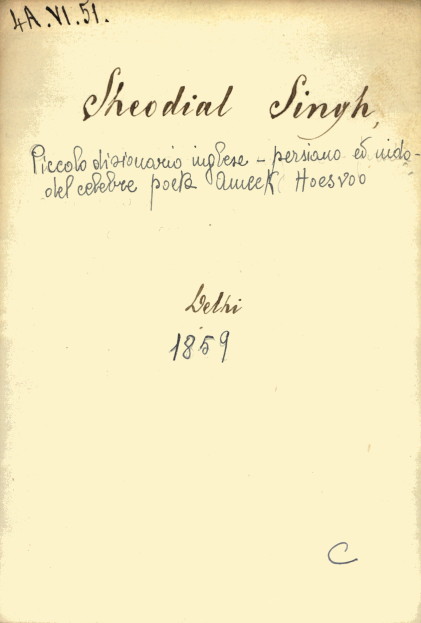 4A.VI.51.
Sheodial Singh,
Piccolo dizionario inglese – persiano ed indo-
del celebre poeta Ameek Hoesvoo
Delhi
1859
C